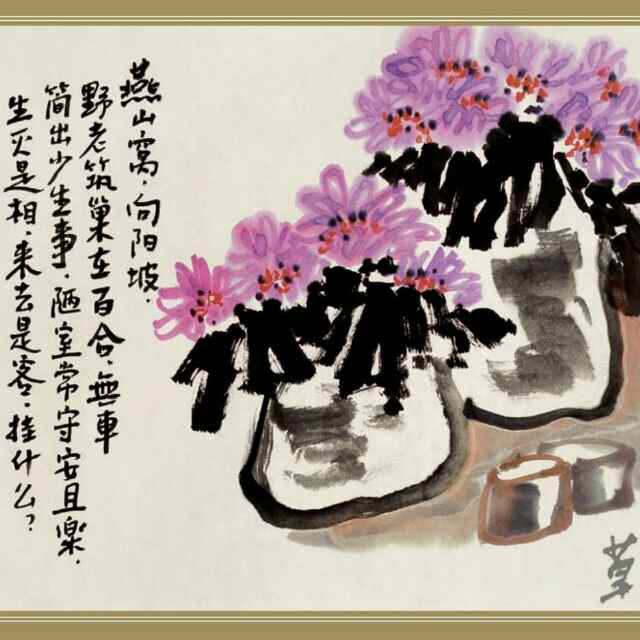 燕山窝，向阳坡，
野老筑巢在百合，無車
简出少生事，陋室常守安且樂，
生灭是相，来去是客，挂什么？
草